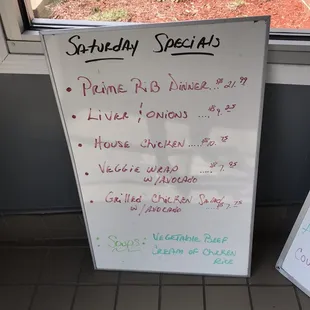 Saturday Specials
• Prime Rib Dinner... $21.99
• Liver & Onions ....
• House Chicken .....
• Veggie Wrap .....
w/ Avocado
• Grilled Chicken Salad
w/ Avocado
Soups: Vegetable Beef
Cream of Chicken
Rice